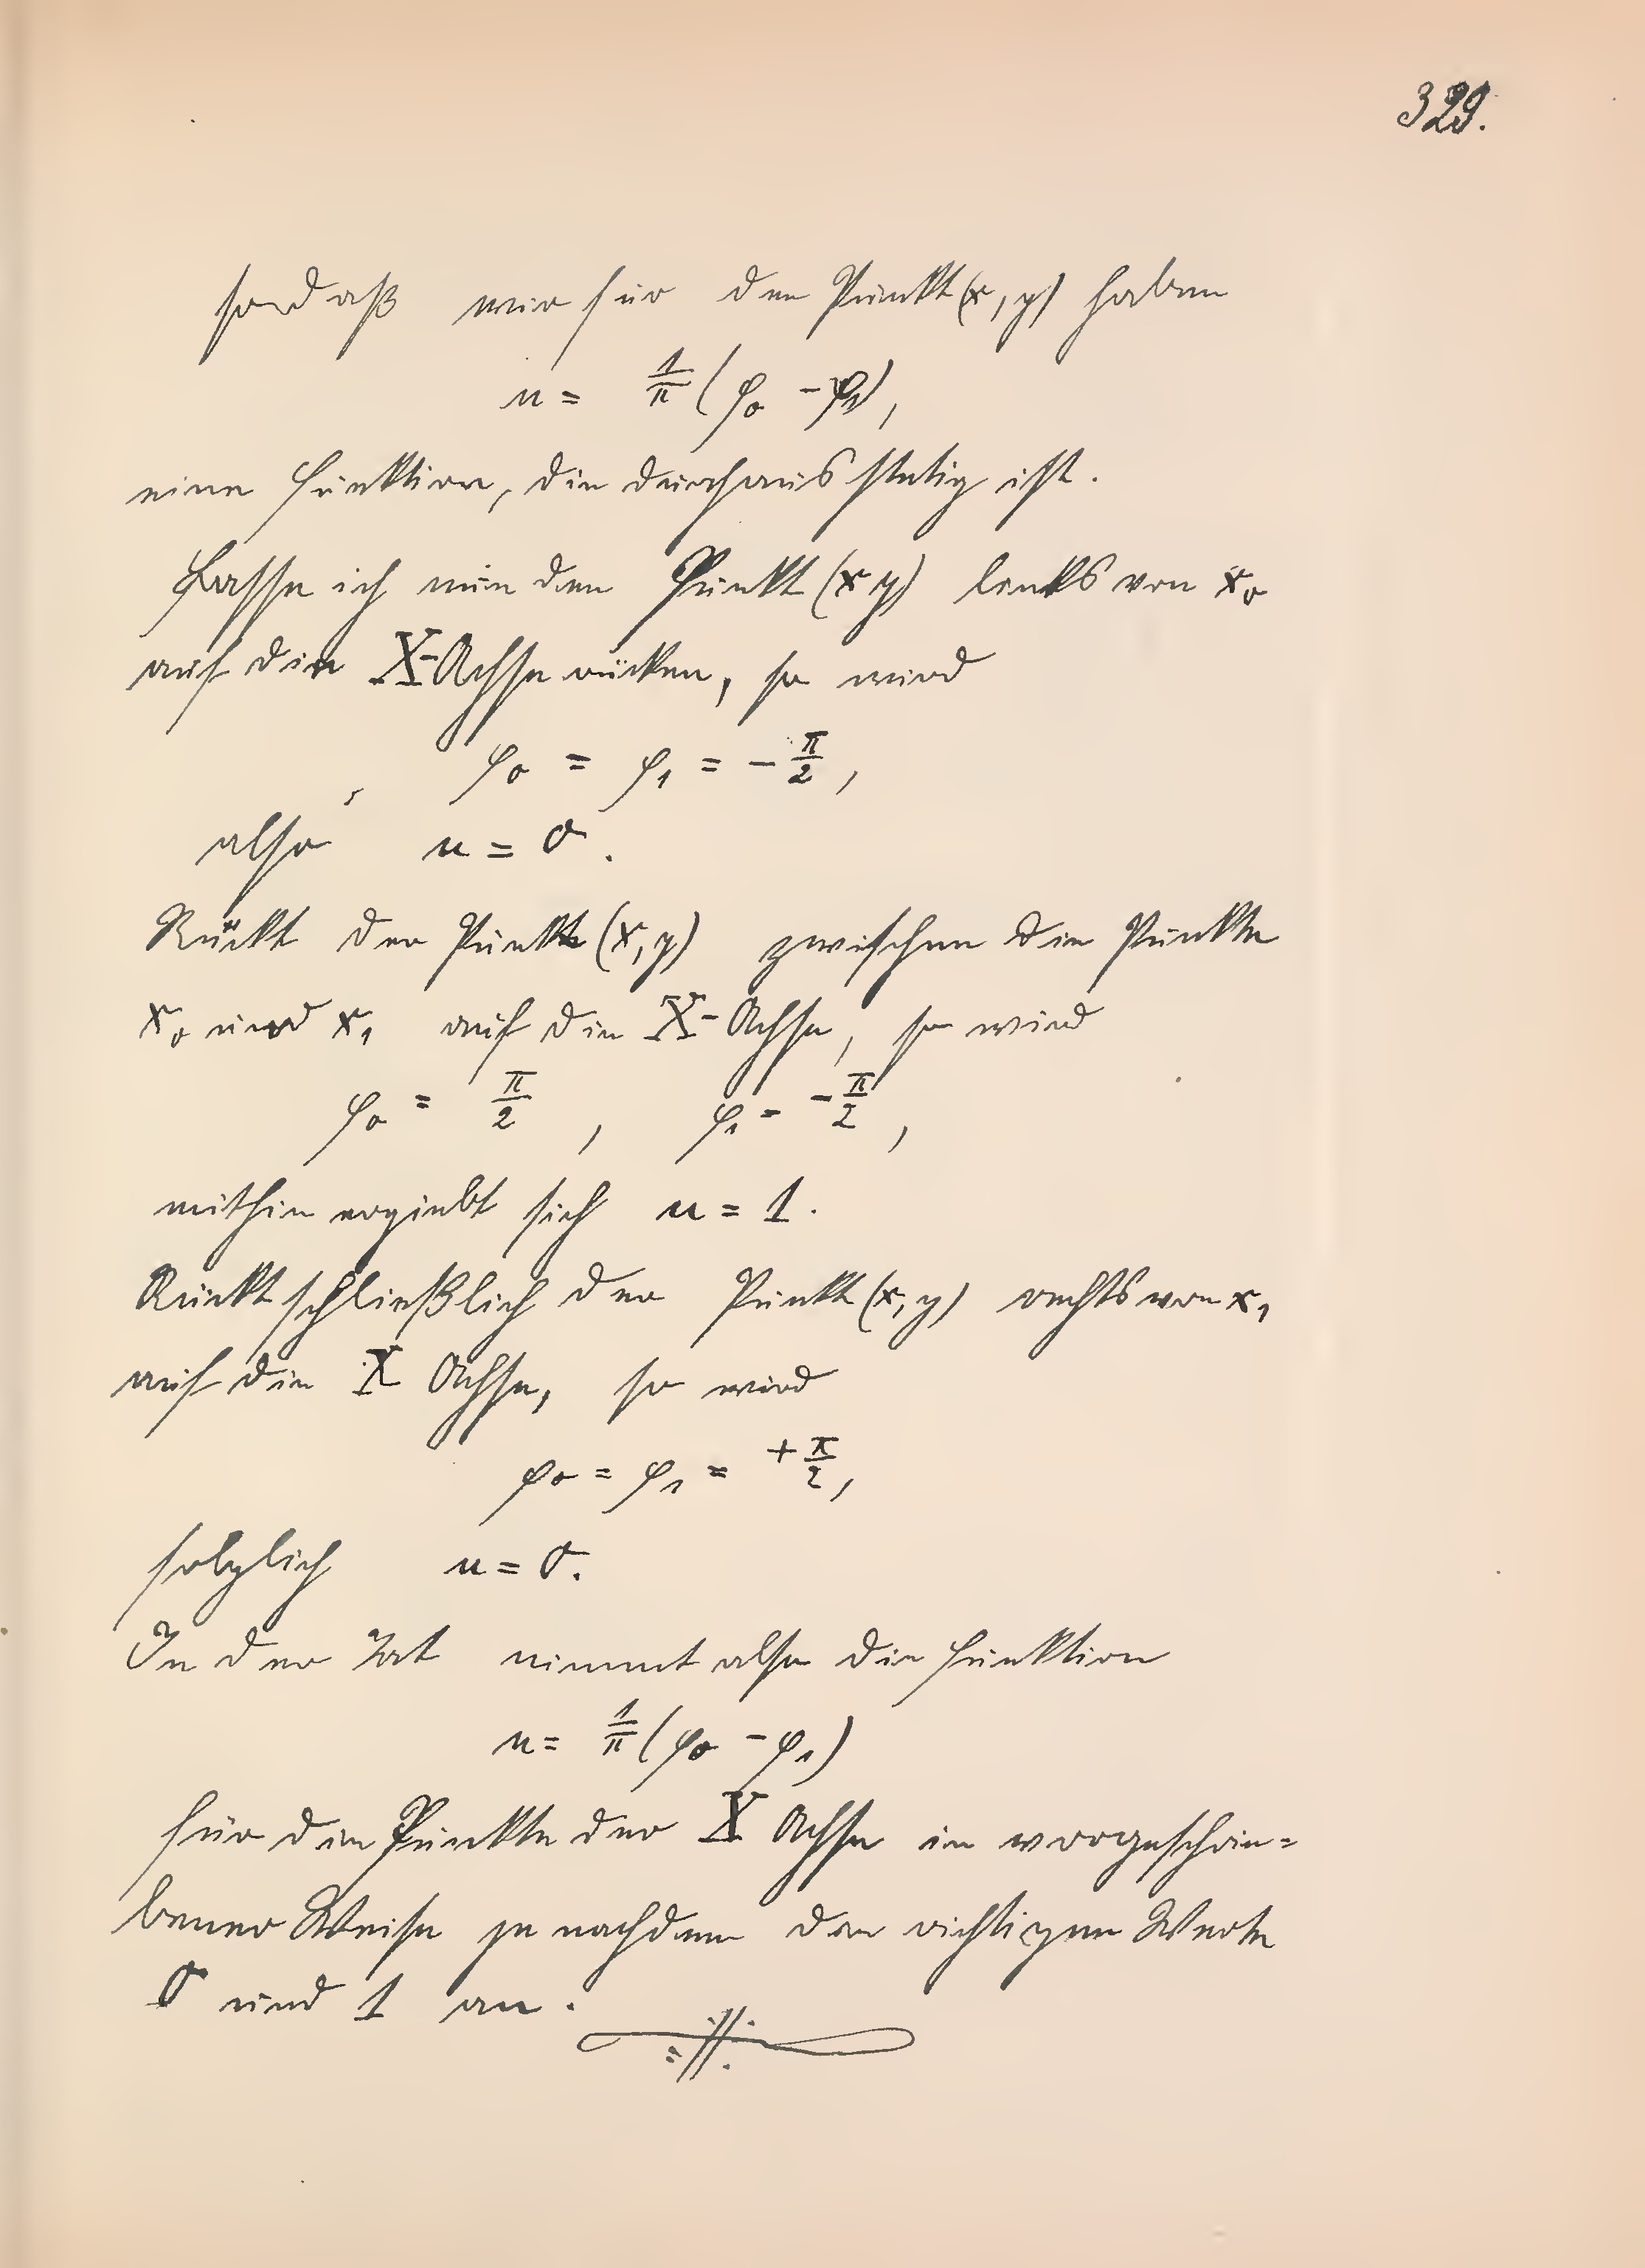 329.
sodaß wir für den Punkt (x, y) haben
u = 1/π (φ₀ - φ₁),
eine Funktion, die durchaus stetig ist.
Lasse ich nun den Punkt (x y) links von x₀
auf die X-Achse rücken, so wird
φ₀ = φ₁ = - π/2,
also u = 0.
Rückt der Punkt (x, y) zwischen die Punkte
x₀ und x₁ auf die X-Achse, so wird
φ₀ = π/2, φ₁ = - π/2,
mithin ergiebt sich u = 1.
Rückt schließlich der Punkt (x, y) rechts von x₁
auf die X Achse, so wird
φ₀ = φ₁ = + π/2,
folglich u = 0.
In der Tat nimmt also die Funktion
u = 1/π (φ₀ - φ₁)
für die Punkte der X Achse in vorgeschrie=
bener Weise je nachdem die richtigen Werte
0 und 1 an.